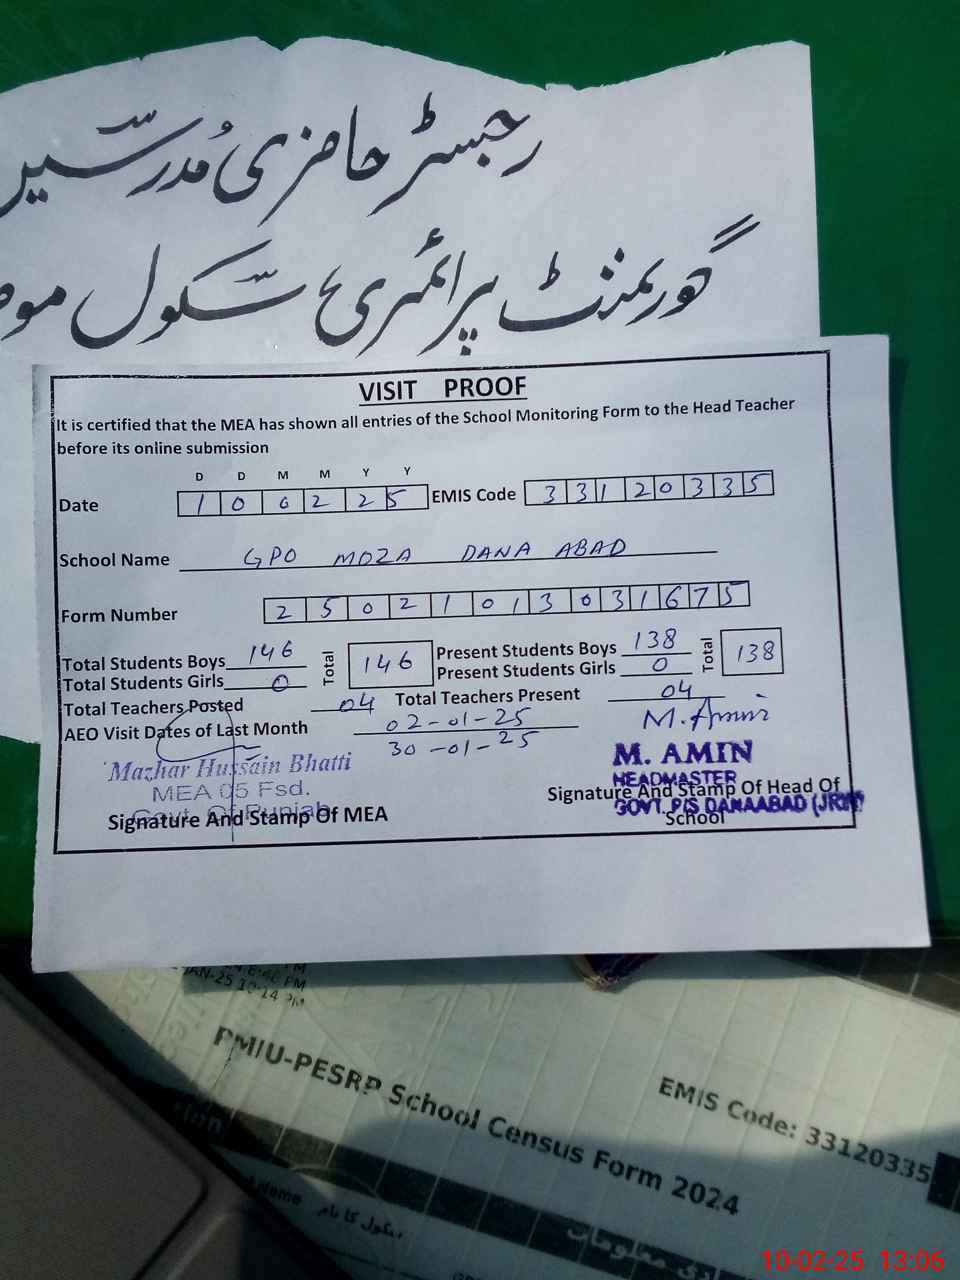 رجسٹر حاضری مُدرّسین
گورنمنٹ پرائمری سکول
VISIT PROOF
It is certified that the MEA has shown all entries of the School Monitoring Form to the Head Teacher
before its online submission
D D M M Y Y
Date 1 0 0 2 2 5 EMIS Code 3 3 1 2 0 3 3 5
School Name GPO MOZA DANA ABAD
Form Number 2 5 0 2 1 0 1 3 0 3 1 6 7 5
Total Students Boys 146 Total 146 Present Students Boys 138 Total 138
Total Students Girls 0 Present Students Girls 0
Total Teachers Posted 04 Total Teachers Present 04
AEO Visit Dates of Last Month 02-01-25
30-01-25
M. Amin
Mazhar Hussain Bhatti
MEA 05 Fsd.
Govt. Of Punjab
Signature And Stamp Of MEA
M. AMIN
HEADMASTER
GOVT. P/S DANAABAD (JRW)
Signature And Stamp Of Head Of
School
JAN-25 10:14 PM
PMIU-PESRP School Census Form 2024
EMIS Code: 33120335
سکول کا نام
معلومات
10-02-25 13:06